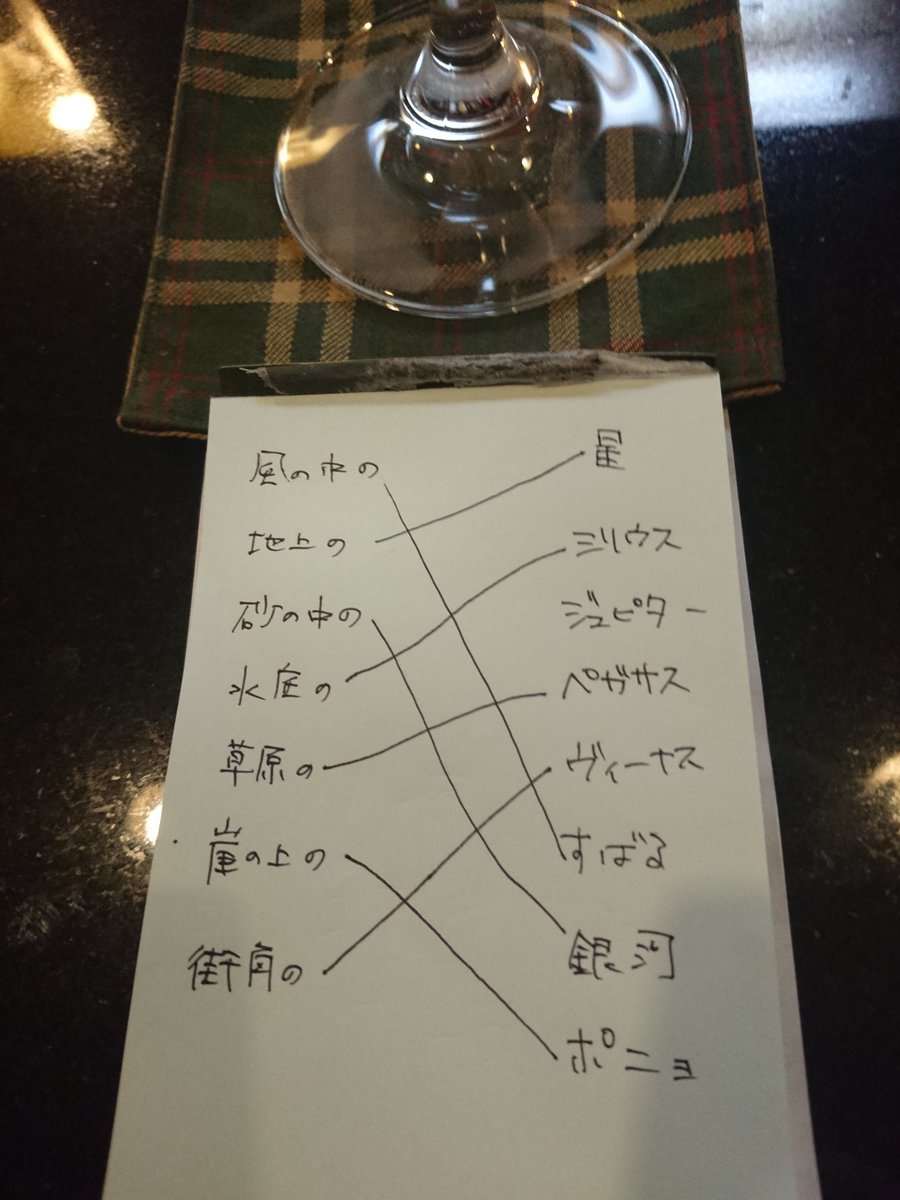 風の中の
地上の
砂の中の
水底の
草原の
崖の上の
街角の
星
シリウス
ジュピター
ペガサス
ヴィーナス
すばる
銀河
ポニョ